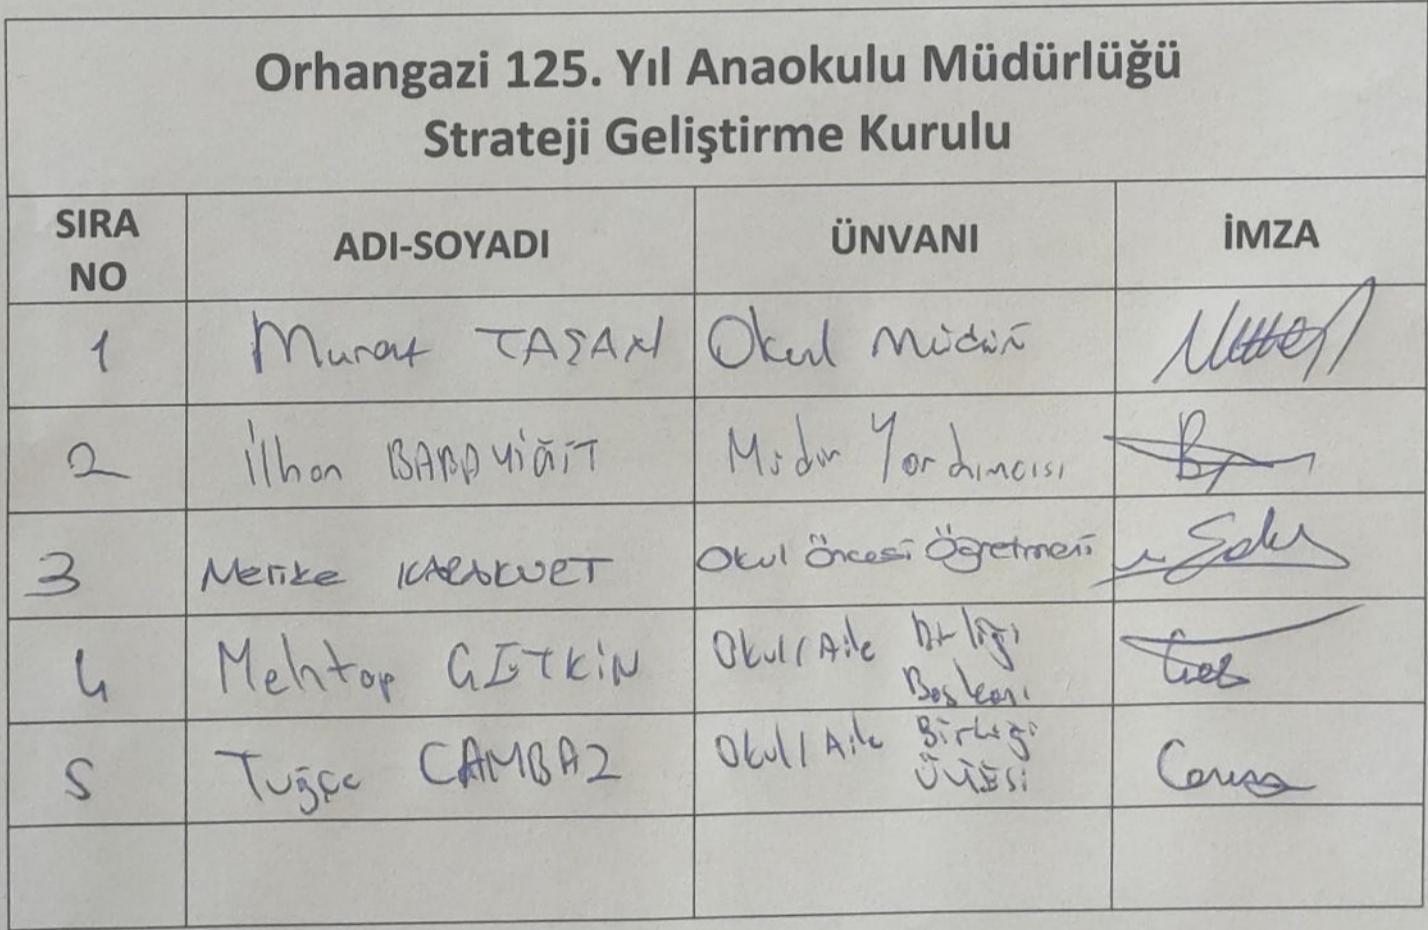 Orhangazi 125. Yıl Anaokulu Müdürlüğü
Strateji Geliştirme Kurulu
SIRA NO ADI-SOYADI ÜNVANI İMZA
1 Murat TAŞAN Okul Müdürü
2 İlhan BABAYİĞİT Müdür Yardımcısı
3 Melike KARAKURT Okul Öncesi Öğretmeni
4 Mehtap ÇETKİN Okul/Aile Birliği
Başkanı
5 Tuğçe CAMBAZ Okul/Aile Birliği
ÜYESİ